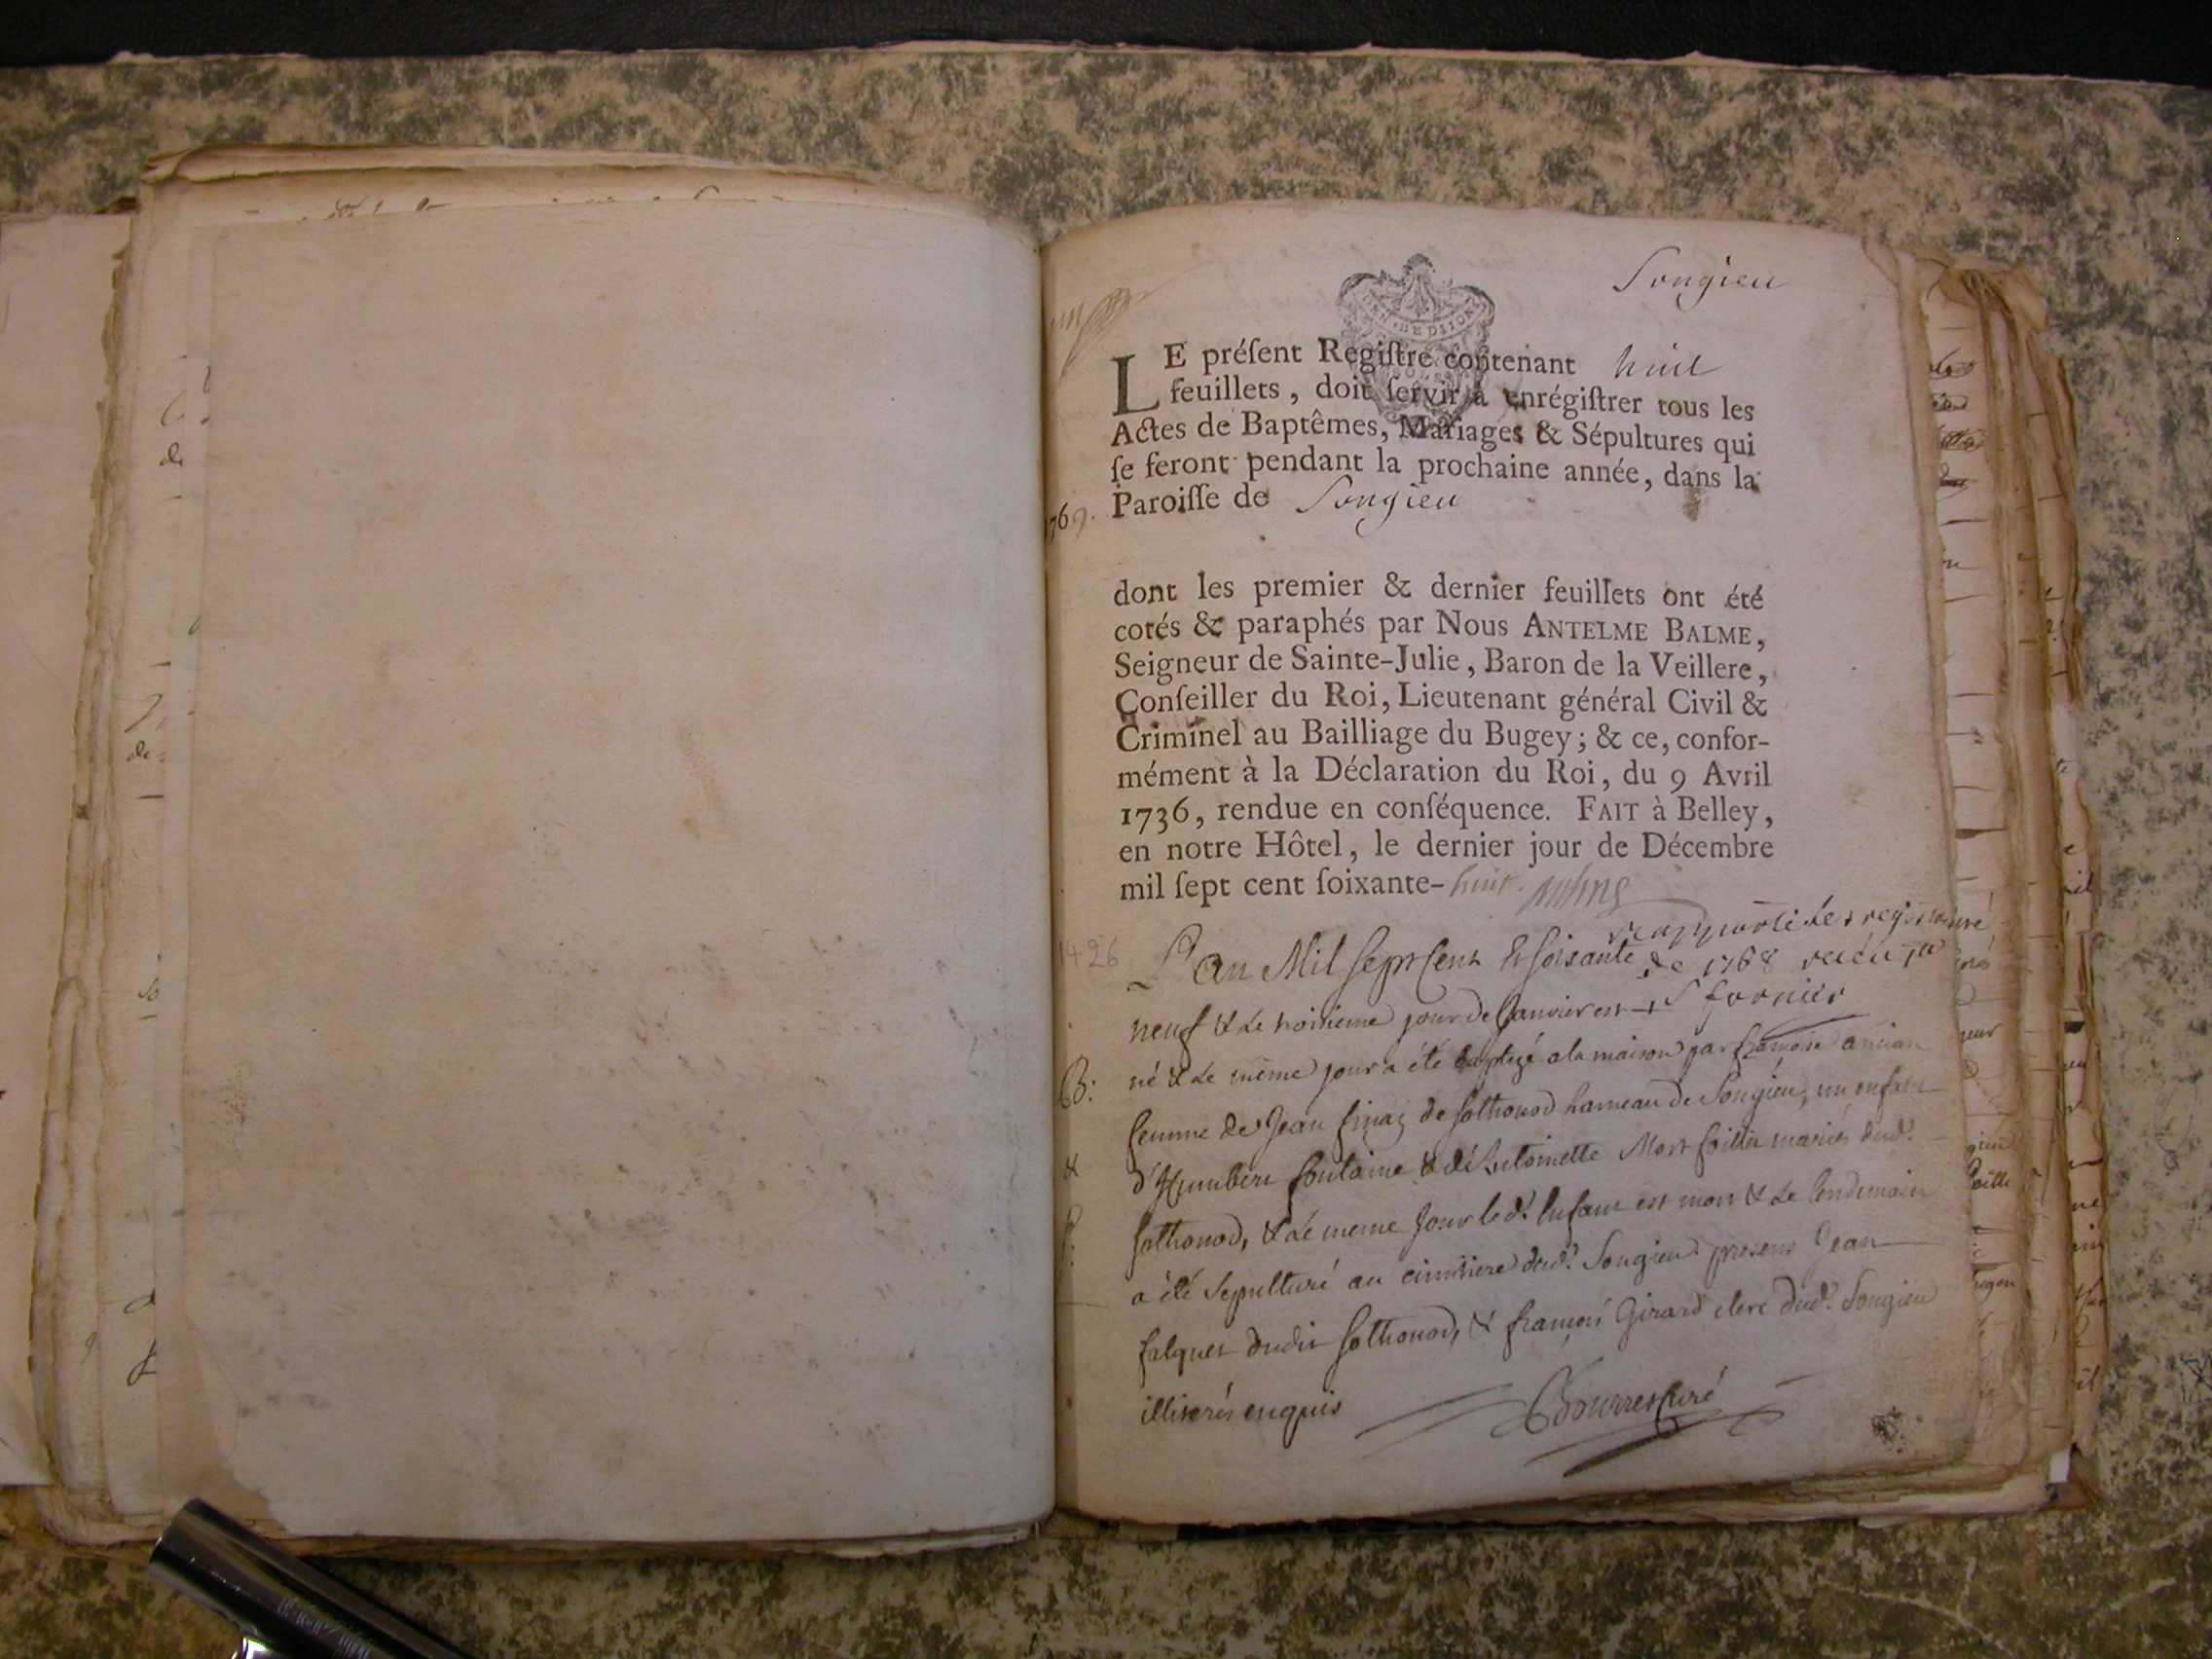 Songieu
LE préſent Regiſtre contenant huit
feuillets, doit ſervir à enrégiſtrer tous les
Actes de Baptêmes, Mariages & Sépultures qui
ſe feront pendant la prochaine année, dans la
Paroiſſe de Songieu
1769.
dont les premier & dernier feuillets ont été
cotés & paraphés par Nous ANTELME BALME,
Seigneur de Sainte-Julie, Baron de la Veillere,
Conſeiller du Roi, Lieutenant général Civil &
Criminel au Bailliage du Bugey; & ce, confor-
mément à la Déclaration du Roi, du 9 Avril
1736, rendue en conſéquence. FAIT à Belley,
en notre Hôtel, le dernier jour de Décembre
mil ſept cent ſoixante-huit.
rapporté les registres
de 1768
fornier
1426
L'an Mil Sept Cent & soisante
neuf & le troisieme jour de Janvier est
B: né & le même jour a été baptizé a la maison par françoise
femme de Jean finaz de sothonod hameau de Songieu, un enfant
& d'Humbert fontaine & d'Antoinette mariés dud.
S: sothonod, & le meme Jour led. Enfant est mort & le lendemain
a été sepulturé au cimitiere dud. Songieu presens Jean
falquet dudit sothonod, & françois Girard clerc dud. Songieu
illiterés enquis
Bourret Curé